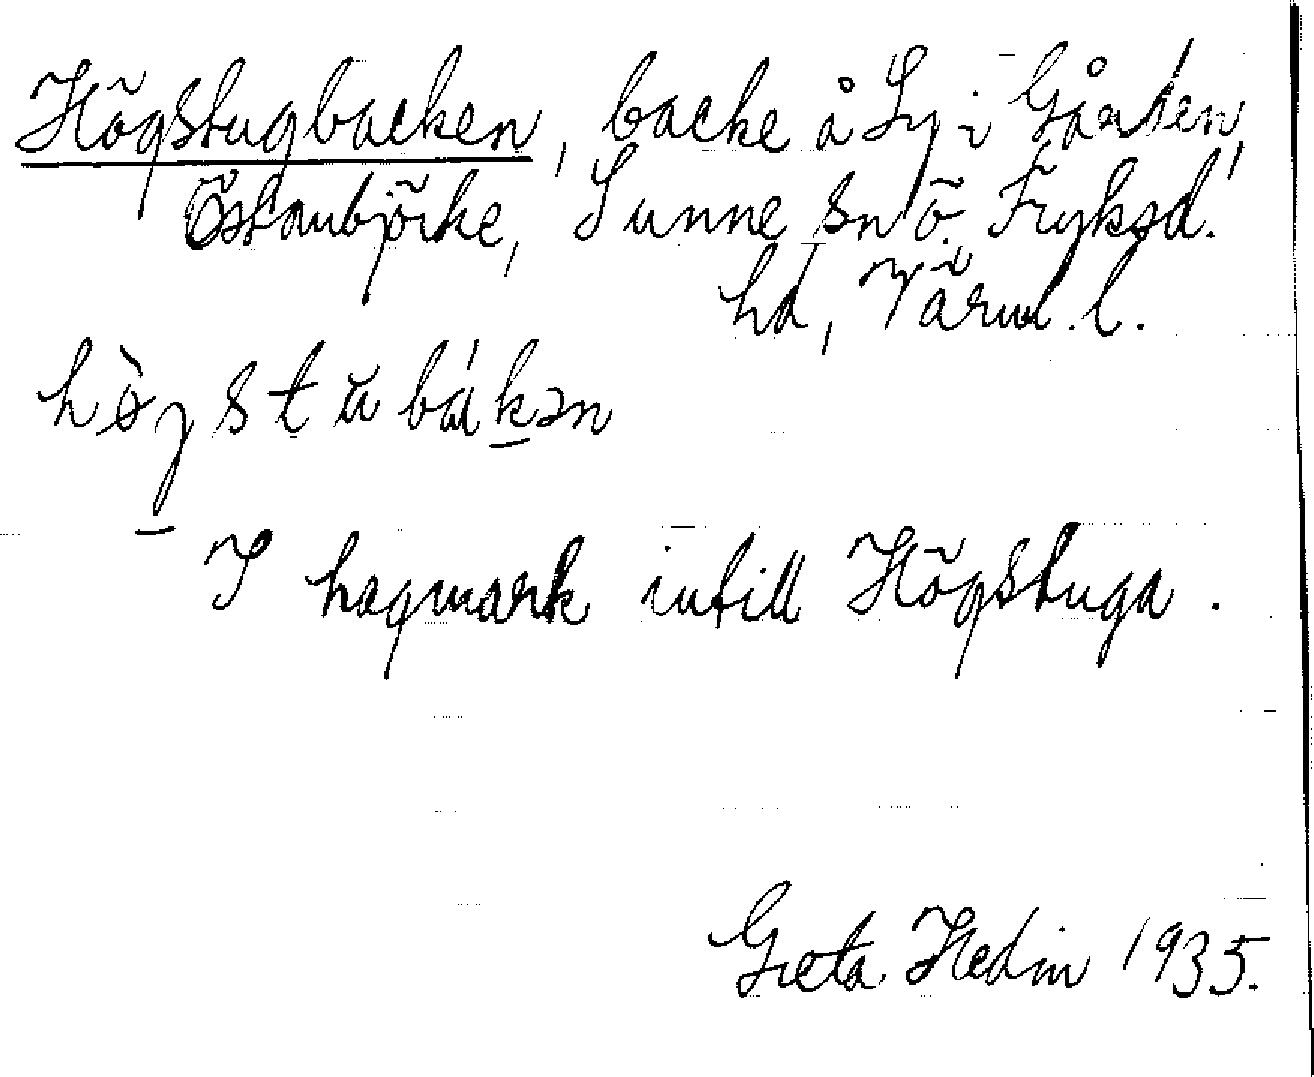 Högstugbacken, backe å Ly i Gården,
Östanbjörke, Sunne sn ö. Fryksd.
hd, Värml. l.
hø̀gstŭbákən
I hagmark intill Högstuga.
Greta Hedin 1935.